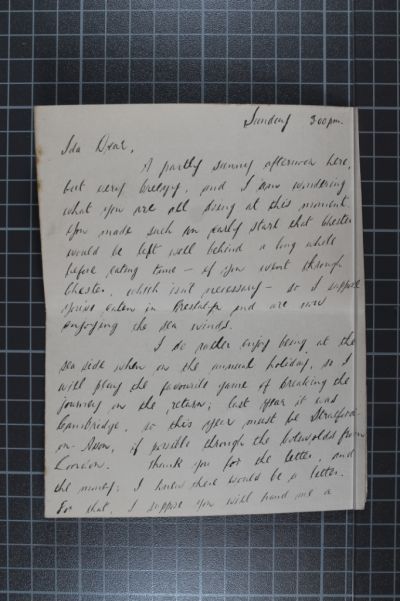 Sunday 3.00 pm.
Ida Dear,
A partly sunny afternoon here,
but very breezy, and I am wondering
what you are all doing at this moment.
You made such an early start that Chester
would be left well behind a long while
before eating time – if you went through
Chester, which isn't necessary – so I suppose
you've eaten in and are now
enjoying the sea winds.
I do rather enjoy being at the
sea side when on the annual holiday, so I
will play the favourite game of breaking the
journey on the return; last year it was
Cambridge, so this year must be Stratford-
on-Avon, if possible through the Cotswolds from
London. Thank you for the letter, and
the money; I knew there would be a letter.
For that, I suppose you will hand me a